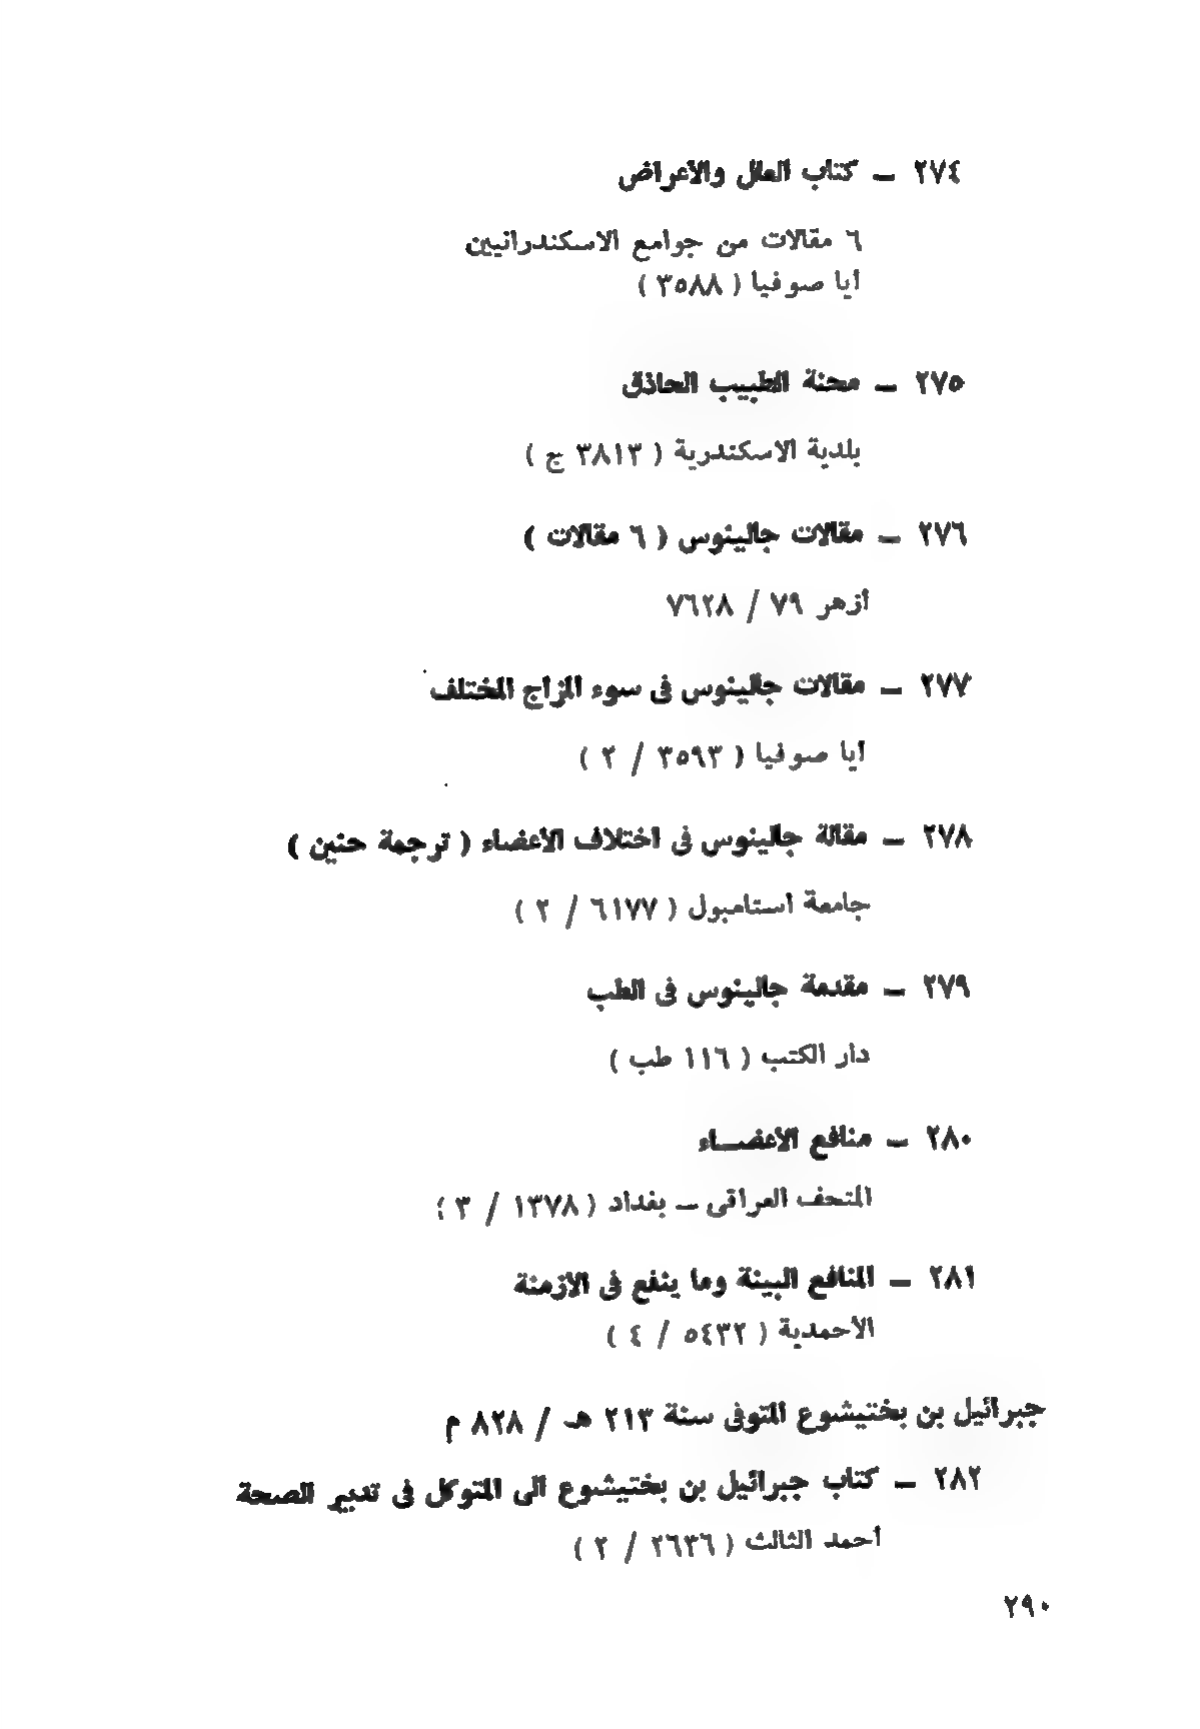 ٢٧٤ – كتاب العلل والأعراض
٦ مقالات من جوامع الاسكندرانيين
أيا صوفيا ( ٣٥٨٨ )
٢٧٥ – محنة الطبيب الحاذق
بلدية الاسكندرية ( ٣٨١٣ ج )
٢٧٦ – مقالات جالينوس ( ٦ مقالات )
أزهر ٧٩ / ٧٦٢٨
٢٧٧ – مقالات جالينوس فى سوء المزاج المختلف
أيا صوفيا ( ٣٥٩٣ / ٢ )
٢٧٨ – مقالة جالينوس فى اختلاف الأعضاء ( ترجمة حنين )
جامعة استامبول ( ٦١٧٧ / ٢ )
٢٧٩ – مقدمة جالينوس فى الطب
دار الكتب ( ١١٦ طب )
٢٨٠ – منافع الأعضـــاء
المتحف العراقى – بغداد ( ١٣٧٨ / ٣ )
٢٨١ – المنافع البينة وما ينفع فى الازمنة
الأحمدية ( ٥٤٣٢ / ٤ )
جبرائيل بن بختيشوع المتوفى سنة ٢١٣ هـ / ٨٢٨ م
٢٨٢ – كتاب جبرائيل بن بختيشوع الى المتوكل فى تدبير الصحة
أحمد الثالث ( ٢٦٣٦ / ٢ )
٢٩٠